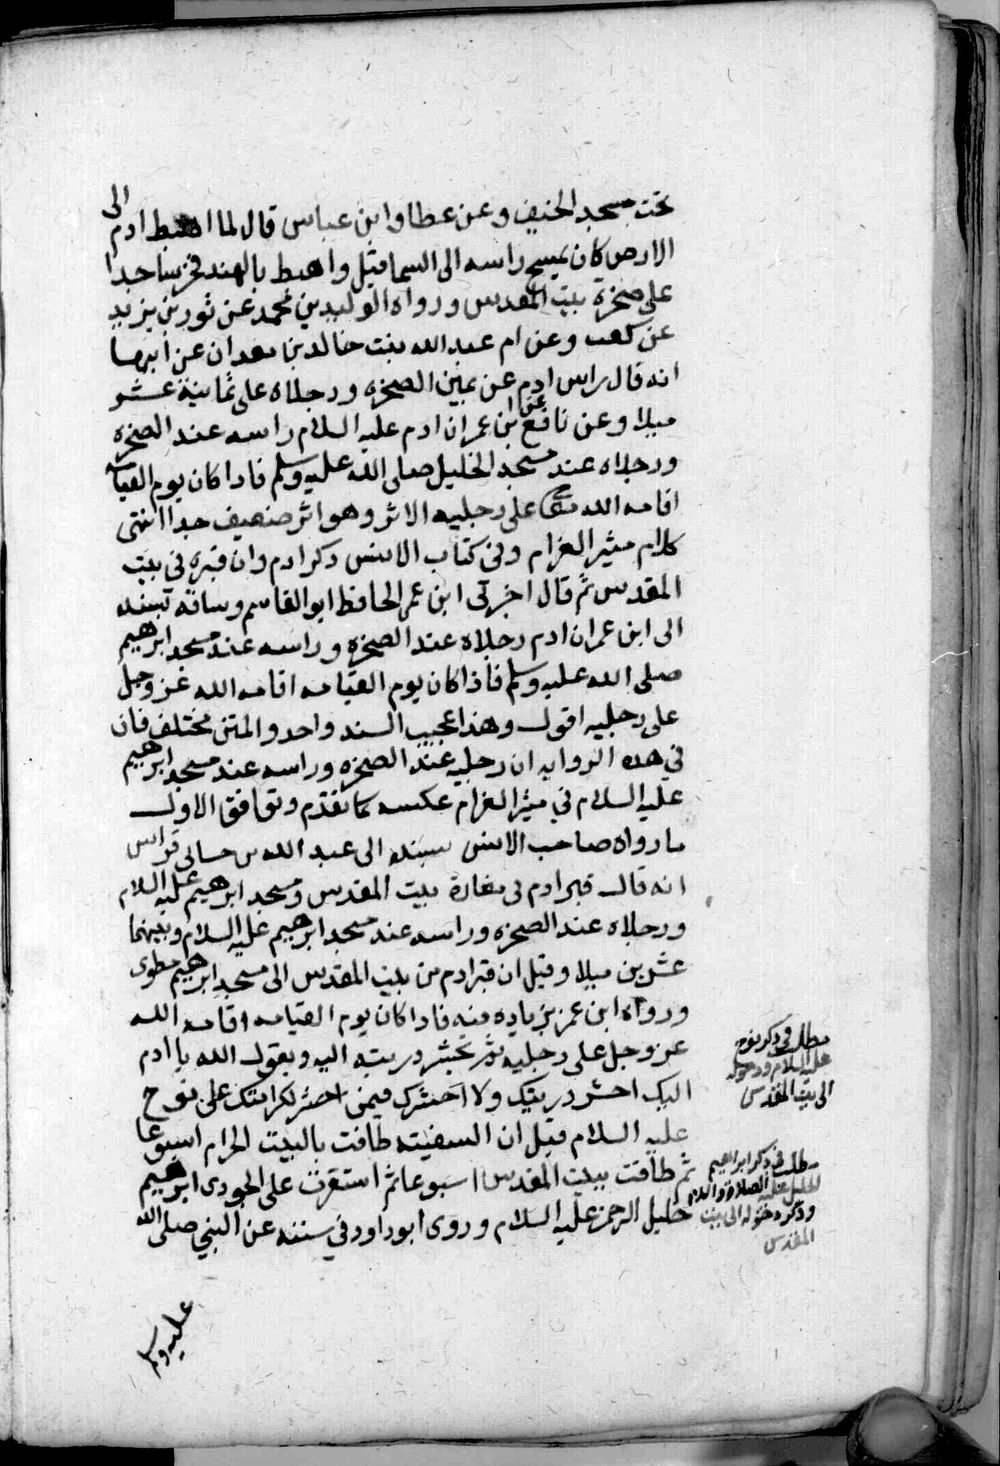 تحت مسجد الخيف وعن عطا وابن عباس قال لما اهبط ادم الى
الارض كان يمسح راسه الى السما قيل واهبط بالهند فخر ساجدا
على صخرة بيت المقدس ورواه الوليد بن محمد عن ثور بن يزيد
عن كعب وعن ام عبد الله بنت خالد بن معدان عن ابيها
انه قال راس ادم عن يمين الصخره ورجلاه على ثمانية عشر
ميلا وعن نافع عن ابن عمر ان ادم عليه السلام راسه عند الصخره
ورجلاه عند مسجد الخليل صلى الله عليه وسلم فاذا كان يوم القيامه
اقامه الله على رجليه الاثر وهو اثر ضعيف جدا انتهى
كلام مثير الغرام وفي كتاب الانس ذكر ادم وان قبره في بيت
المقدس ثم قال اخبرني ابن عمر الحافظ ابو القاسم وساقه بسنده
الى ابن عمر ان ادم رجلاه عند الصخرة وراسه عند مسجد ابرهيم
صلى الله عليه وسلم فاذا كان يوم القيامه اقامه الله عز وجل
على رجليه اقول وهذا عجيب السند واحد والمتن مختلف فان
في هذه الروايه ان رجليه عند الصخره وراسه عند مسجد ابرهيم
عليه السلام في مثير الغرام عكسه كما تقدم وتوافق الاول
ما رواه صاحب الانس بسنده الى عبد الله بن
انه قال قبر ادم في مغارة بيت المقدس ومسجد ابرهيم عليه السلام
ورجلاه عند الصخره وراسه عند مسجد ابرهيم عليه السلام وبينهما
عشرين ميلا وقيل ان قبر ادم من بيت المقدس الى مسجد ابرهيم مطوى
ورواه ابن عمر بزياده فيه فاذا كان يوم القيامه اقامه الله
عز وجل على رجليه ثم تحشر ذريته اليه ويقول الله يا ادم
اليك احشر ذريتك ولا احشرك فيمن احشر لكرامتك على نوح
عليه السلام قيل ان السفينه طافت بالبيت الحرام اسبوعا
ثم طافت ببيت المقدس اسبوعا ثم استقرت على الجودى ابرهيم
خليل الرحمن عليه السلام وروى ابو داود في سننه عن النبي صلى الله
عليه وسلم
مطلب في ذكر نوح
عليه السلام ودخوله
الى بيت المقدس
مطلب في ذكر ابراهيم
الخليل عليه الصلاة والسلام
وذكر دخوله الى بيت
المقدس